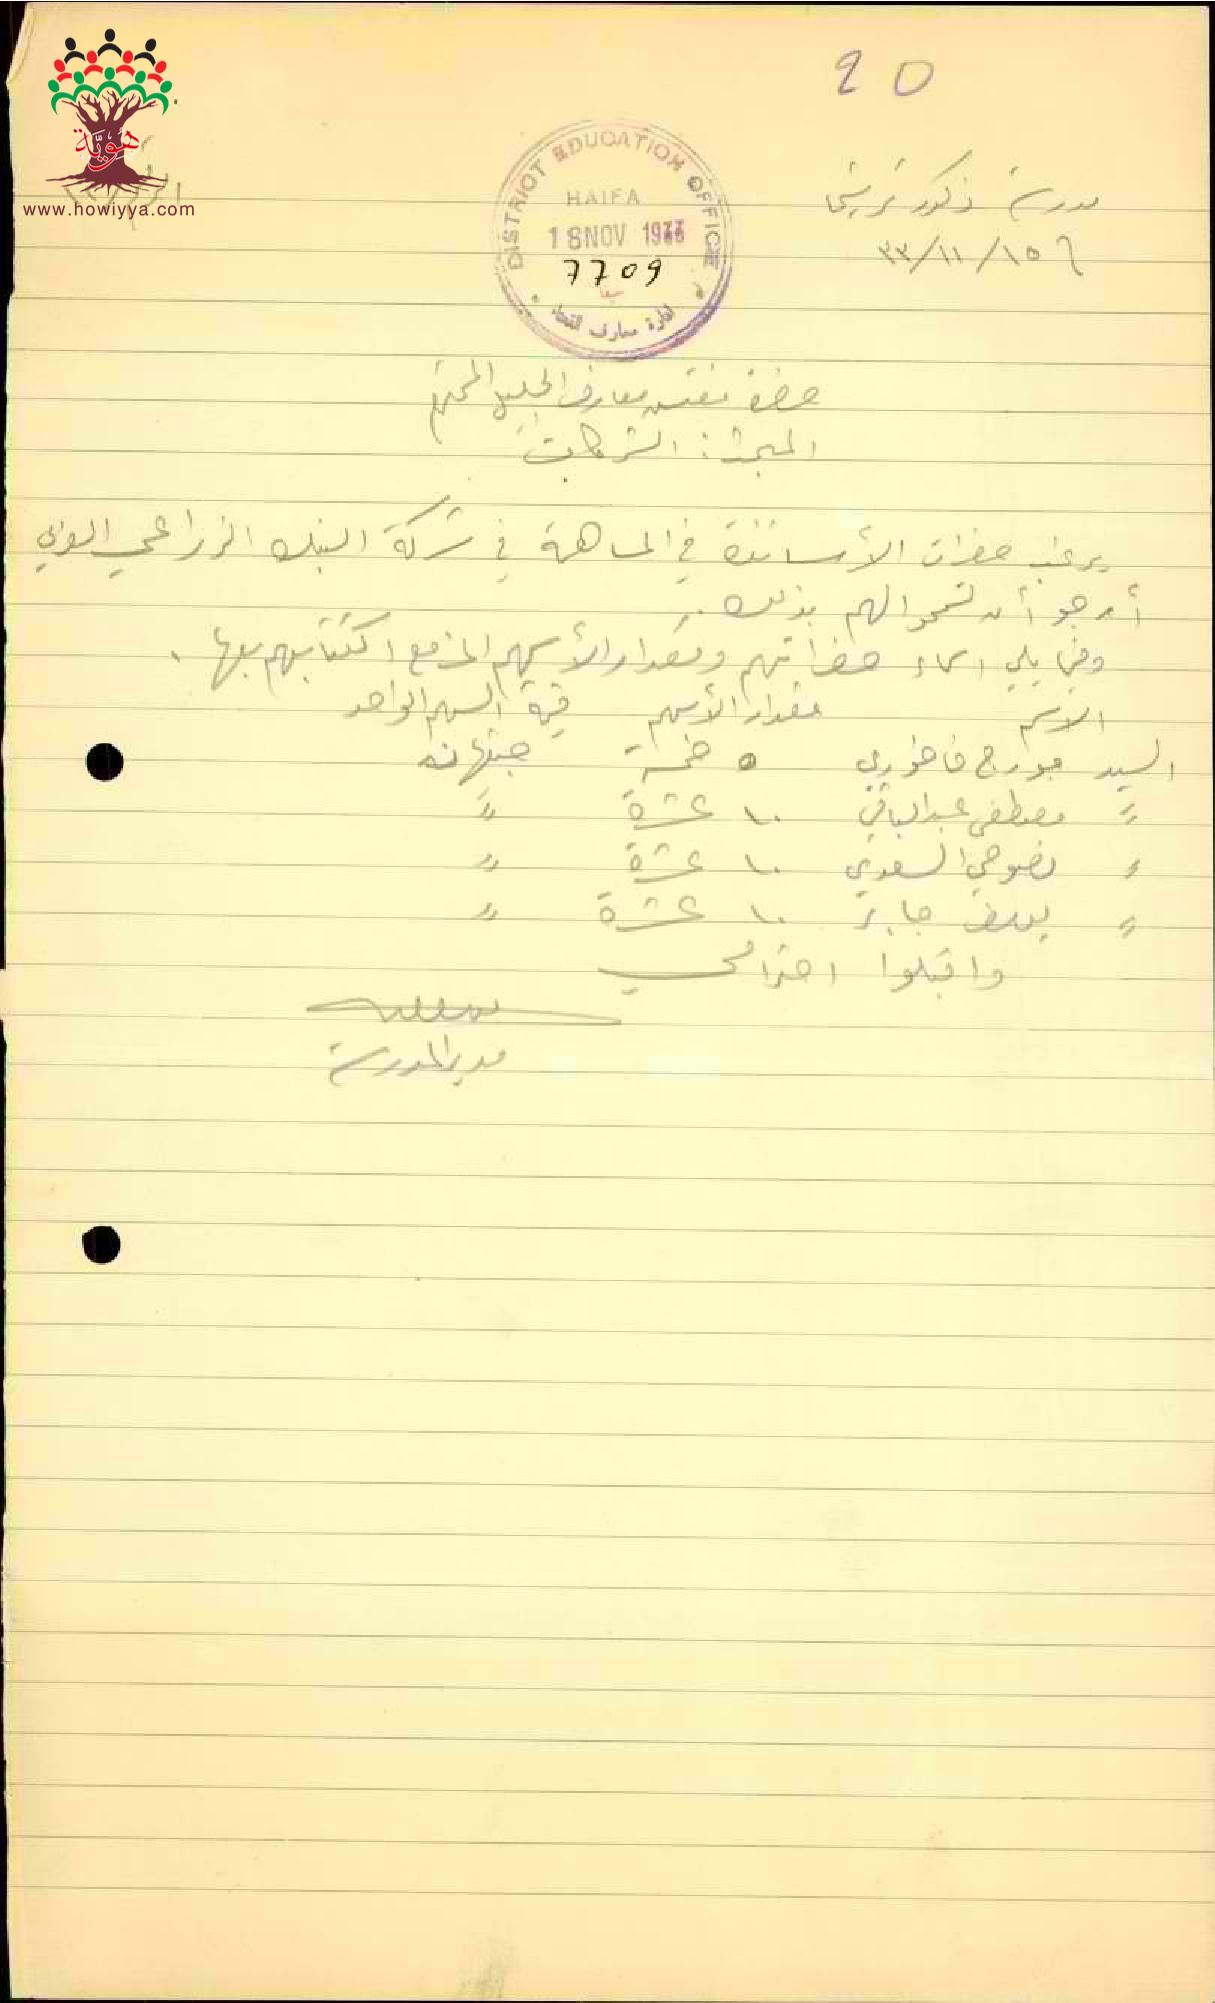 هوية
www.howiyya.com
20
DISTRICT EDUCATION OFFICE
HAIFA
18 NOV 1933
7709
حيفا
ادارة معارف القضاء
مدرسة ذكور ترشيحا
١٥/١١/٣٣
حضرة مفتش معارف الجليل المحترم
المبحث: الشركات
يرغب حضرات الأساتذة في المساهمة في شركة البنك الزراعي العربي
أرجو أن تسمحوا لهم بذلك.
وفيما يلي اسماء حضراتهم ومقدار الأسهم المزمع اكتتابهم بها.
الاسم مقدار الأسهم قيمة السهم الواحد
السيد جورج فاخوري ٥ خمسة جنيهان
" مصطفى عبدالباقي ١٠ عشرة "
" نصوحي السعدي ١٠ عشرة "
" جابر ١٠ عشرة "
واقبلوا احترامي
مدير المدرسة